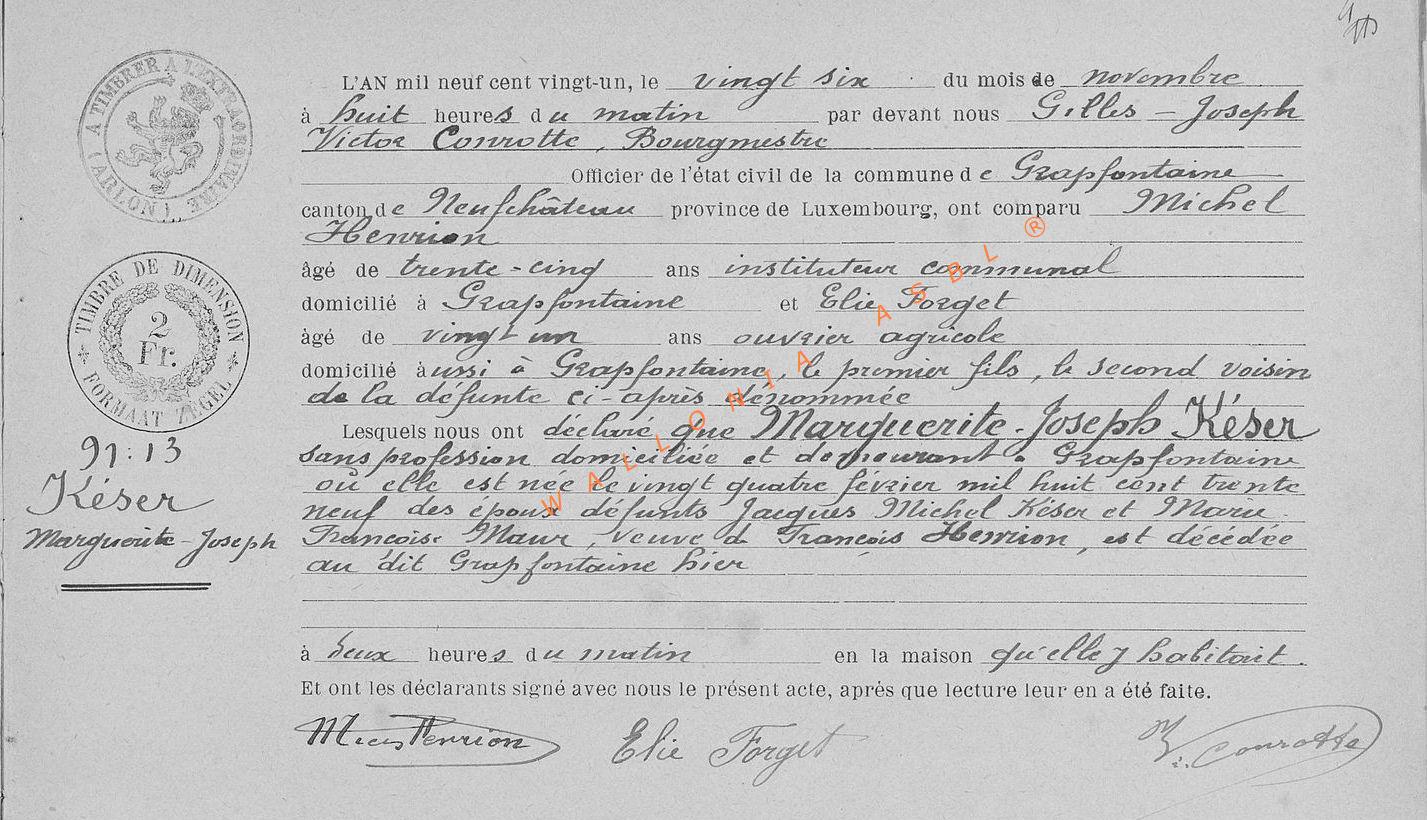 A TIMBRER A L'EXTRAORDINAIRE
(ARLON)
L'AN mil neuf cent vingt-un, le vingt six du mois de novembre
à huit heures du matin par devant nous Gilles - Joseph
Victor Conrotte, Bourgmestre
Officier de l'état civil de la commune de Grapfontaine
canton de Neufchâteau province de Luxembourg, ont comparu Michel
Henrion
âgé de trente-cinq ans instituteur communal
domicilié à Grapfontaine et Elie Forget
âgé de vingt un ans ouvrier agricole
domicilié aussi à Grapfontaine, le premier fils, le second voisin
de la défunte ci-après dénommée
Lesquels nous ont déclaré que Marguerite-Joseph Késer
sans profession domiciliée et demeurant à Grapfontaine
où elle est née le vingt quatre février mil huit cent trente
neuf des époux défunts Jacques Michel Késer et Marie
Françoise Maur, veuve de François Henrion, est décédée
au dit Grapfontaine hier
à deux heures du matin en la maison qu'elle y habitait.
Et ont les déclarants signé avec nous le présent acte, après que lecture leur en a été faite.
Henrion Elie Forget Conrotte
TIMBRE DE DIMENSION
2
Fr.
FORMAAT ZEGEL
N: 13
Késer
Marguerite-Joseph
WALLONIA ASBL ®